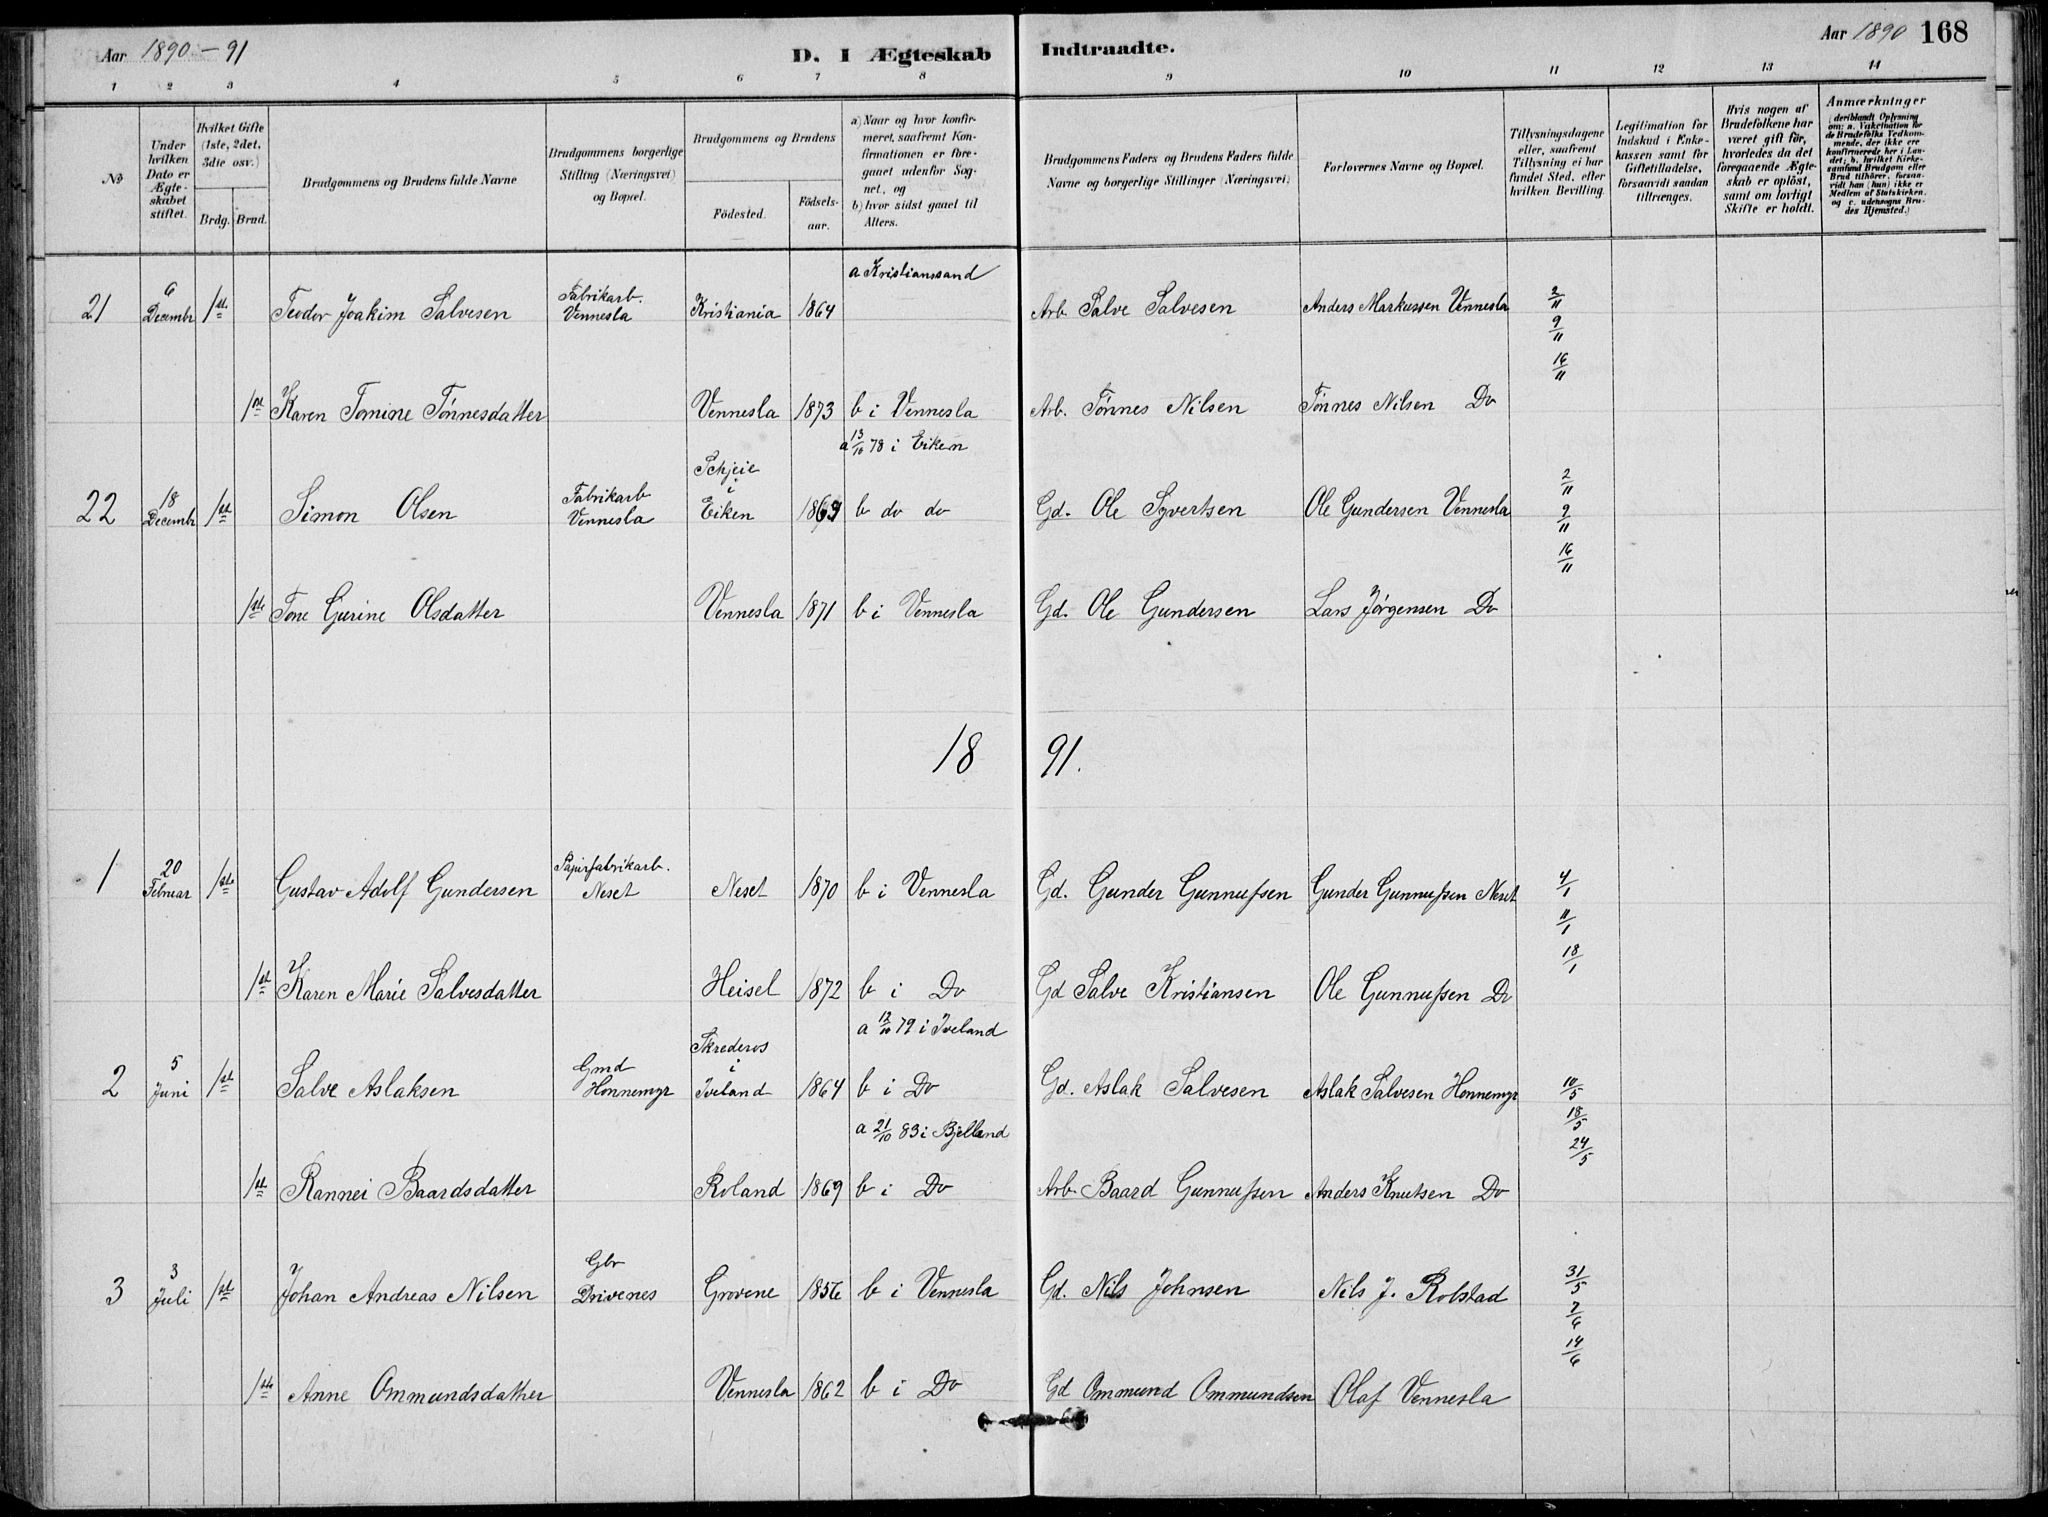 Aar 1890 - 91
D. I Ægteskab
Indtraadte.
Aar 1890 168
1 2 3 4 5 6 7 8 9 10 11 12 13 14
No
Under hvilken Dato er Ægteskabet stiftet.
Hvilket Gifte (1ste, 2det, 3die osv.)
Brdg. Brud.
Brudgommens og Brudens fulde Navne
Brudgommens borgerlige Stilling (Næringsvei) og Bopæl.
Brudgommens og Brudens
Födested.
Födselsaar.
a) Naar og hvor konfirmeret, saafremt Konfirmationen er foregaaet udenfor Sognet, og
b) hvor sidst gaaet til Alters.
Brudgommens Faders og Brudens Faders fulde Navne og borgerlige Stillinger (Næringsvei)
Forlovernes Navne og Bopæl.
Tillysningsdagene eller, saafremt Tillysning ei har fundet Sted, efter hvilken Bevilling.
Legitimation for Indskud i Enkekassen samt for Giftetilladelse, forsaavidt saadan tiltrænges.
Hvis nogen af Brudefolkene har været gift för, hvorledes da det foregaaende Ægteskab er oplöst, samt om lovligt Skifte er holdt.
Anmærkninger (deriblandt Oplysning om: a. Vakcination for de Brudefolks Vedkommende, der ikke ere konfirmerede her i Landet; b. hvilket Kirkesamfund Brudgom eller Brud tilhörer, forsaavidt han (hun) ikke er Medlem af Statskirken, og c. udensogns Brudes Hjemsted.)
a Kristianssand
21 6 Decembr 1ste Teodor Joakim Salvesen Fabrikarb. Vennesla Kristiania 1864 Arb. Salve Salvesen Anders Markussen Vennesla 2/11 9/11 16/11
1ste Karen Tomine Tønnesdatter Vennesla 1873 b i Vennesla Arb. Tønnes Nilsen Tønnes Nilsen Do
a 13/10 78 i Eiken
22 18 Decembr 1ste Simon Olsen Fabrikarb Vennesla Schjeie i Eiken 1863 b do do Gd. Ole Syvertsen Ole Gundersen Vennesla 2/11 9/11 16/11
1ste Tone Gurine Olsdatter Vennesla 1871 b i Vennesla Gd. Ole Gundersen Lars Jørgensen Do
18 91.
1 20 Februar 1ste Gustav Adolf Gundersen Papirfabrikarb. Neset Neset 1870 b i Vennesla Gd. Gunder Gunnufsen Gunder Gunnufsen Neset 4/1 11/1 18/1
1ste Karen Marie Salvesdatter Heisel 1872 b i Do Gd Salve Kristiansen Ole Gunnufsen Do
a 12/10 79 i Iveland
2 5 Juni 1ste Salve Aslaksen Gmd Honnemyr Skrederos i Iveland 1864 b i Do Gd. Aslak Salvesen Aslak Salvesen Honnemyr 10/5 18/5 24/5
a 21/10 83 i Bjelland
1ste Rannei Baardsdatter Roland 1869 b i Do Arb. Baard Gunnufsen Anders Knutsen Do
3 3 Juli 1ste Johan Andreas Nilsen Gbr Drivenes Grovene 1856 b i Vennesla Gd. Nils Johnsen Nils J. Rolstad 31/5 7/6 14/6
1ste Anne Ommundsdatter Vennesla 1862 b i Do Gd Ommund Ommundsen Olaf Vennesla